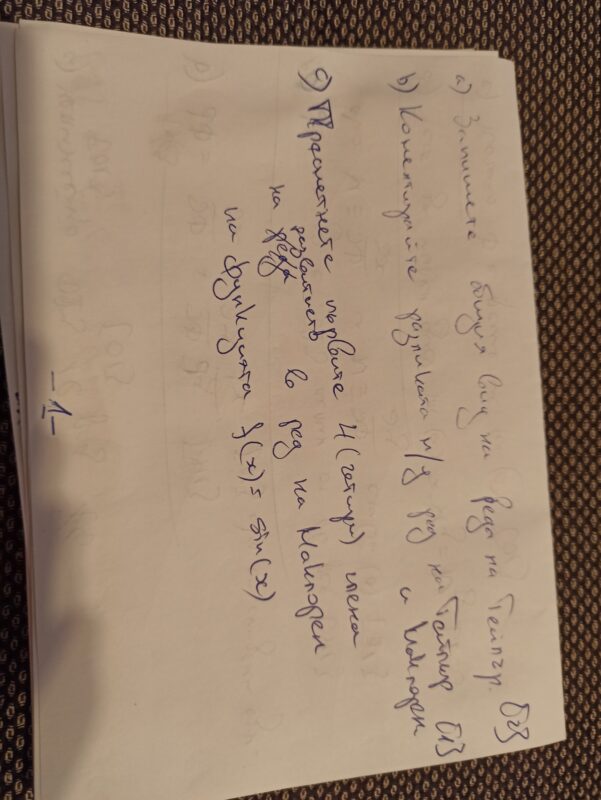 а) Запишете общия вид на реда на Тейлър. [2]
b) Коментирайте разликата м/у ред на Тейлър [1]
и Маклорен
g) Пресметнете първите 4 (четири) члена
на развитието в ред на Маклорен
на функцията f(x) = sin(x)
-1-